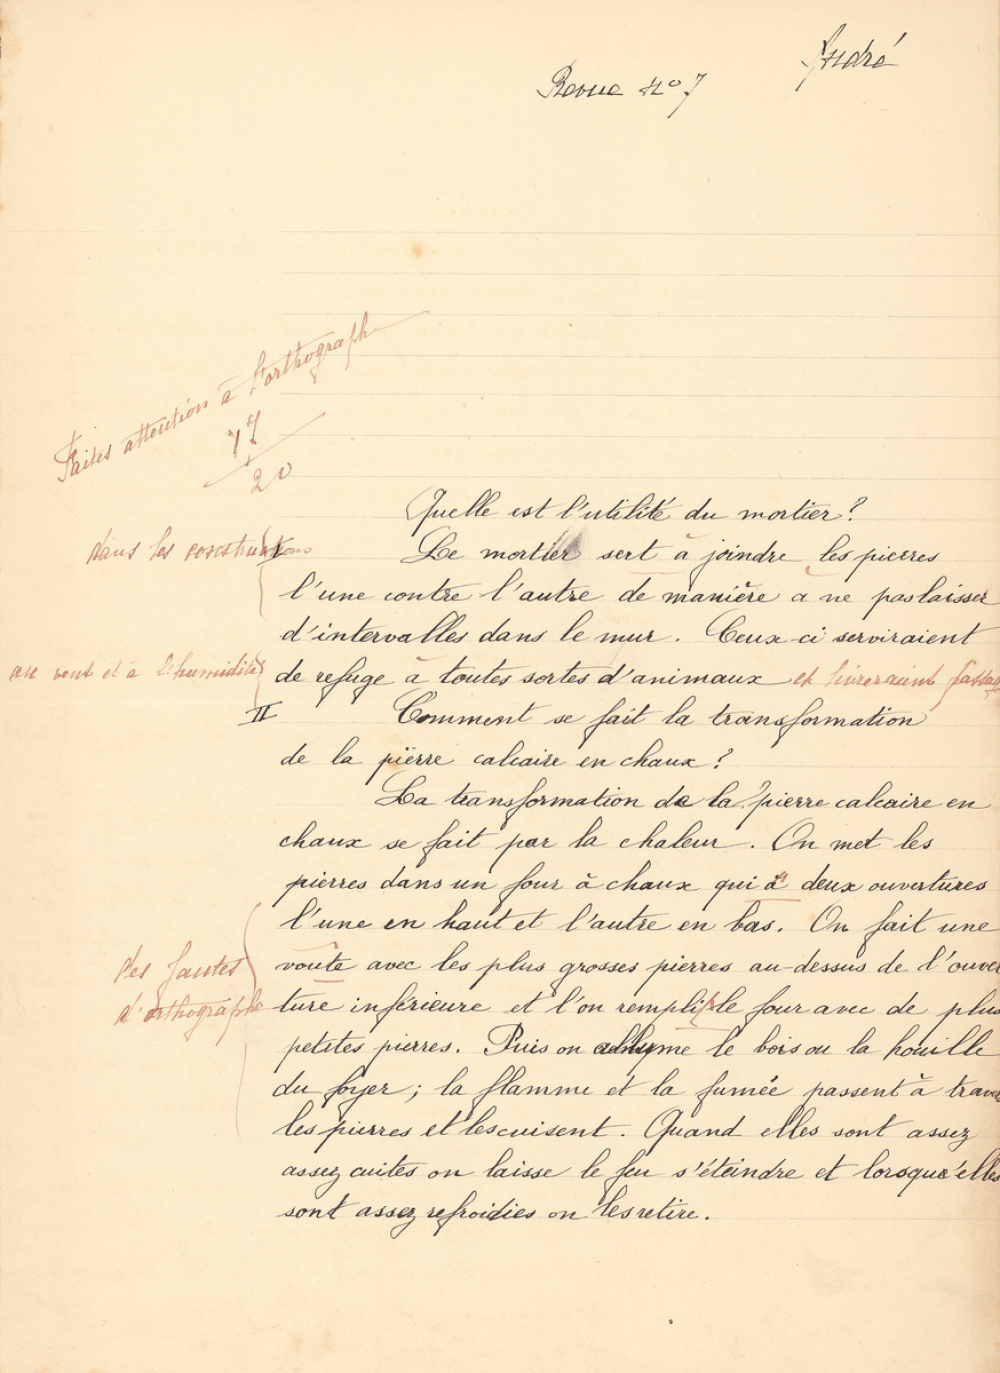 André
Revue No 7
Faites attention à l'orthograph
17
20
Quelle est l'utilité du mortier?
dans les constructions
I
Le mortier sert à joindre les pierres
l'une contre l'autre de manière a ne pas laisser
d'intervalles dans le mur. Ceux-ci serviraient
au vent et à l'humidité
de refuge à toutes sortes d'animaux et livreraient passag
II
Comment se fait la transformation
de la pierre calcaire en chaux?
La transformation de la pierre calcaire en
chaux se fait par la chaleur. On met les
pierres dans un four à chaux qui a deux ouvertures
l'une en haut et l'autre en bas. On fait une
des fautes
voute avec les plus grosses pierres au-dessus de l'ouver
d'orthographe
ture inférieure et l'on remplit le four avec de plus
petites pierres. Puis on allume le bois ou la houille
du foyer; la flamme et la fumée passent à trave
les pierres et les cuisent. Quand elles sont assez
assez cuites on laisse le feu s'éteindre et lorsque'elles
sont assez refroidies on les retire.